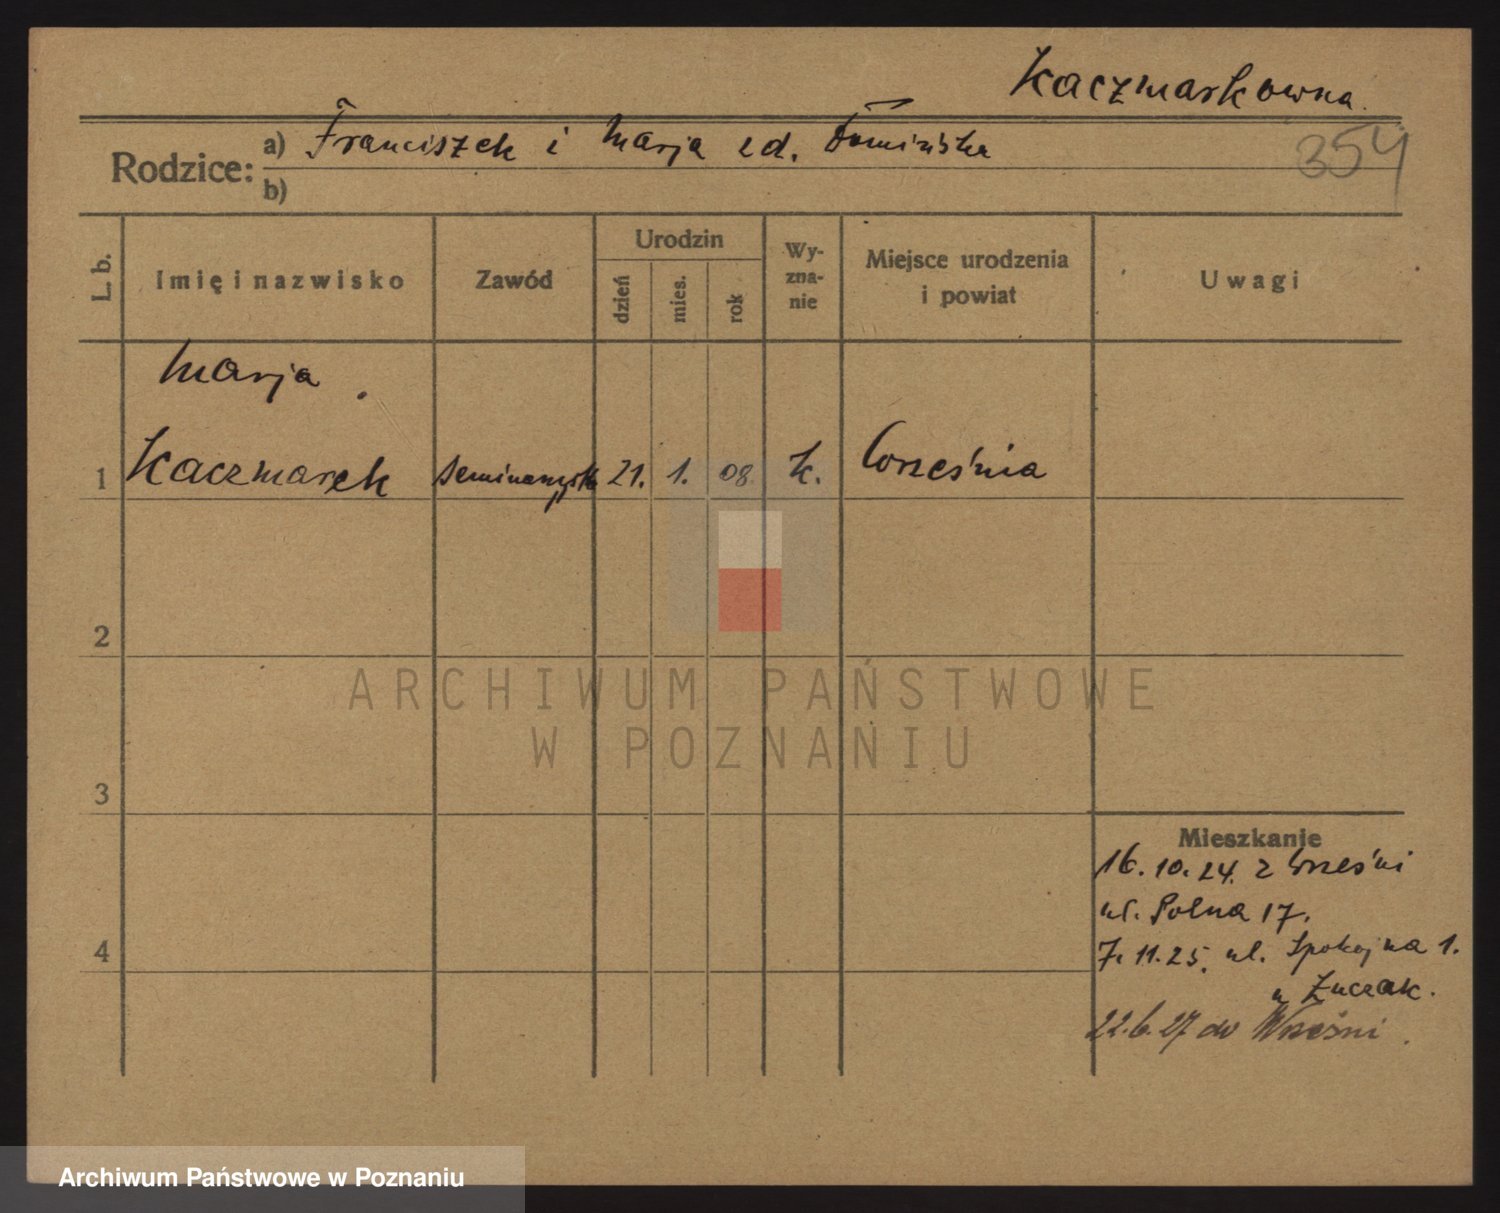 Kaczmarkowna
354
Rodzice: a) Franciszek i Marja zd.
b)
L. b.
Imię i nazwisko
Zawód
Urodzin
dzień
mies.
rok
Wy-
zna-
nie
Miejsce urodzenia
i powiat
Uwagi
Marja
1 Kaczmarek 21. 1. 08 k. Września
2
3
4
Mieszkanie
16. 10. 24. z Wrześni
ul. Polna 17.
7. 11. 25. ul. Spokojna 1.
22.6.27 do Wrześni.
ARCHIWUM PAŃSTWOWE
W POZNANIU
Archiwum Państwowe w Poznaniu